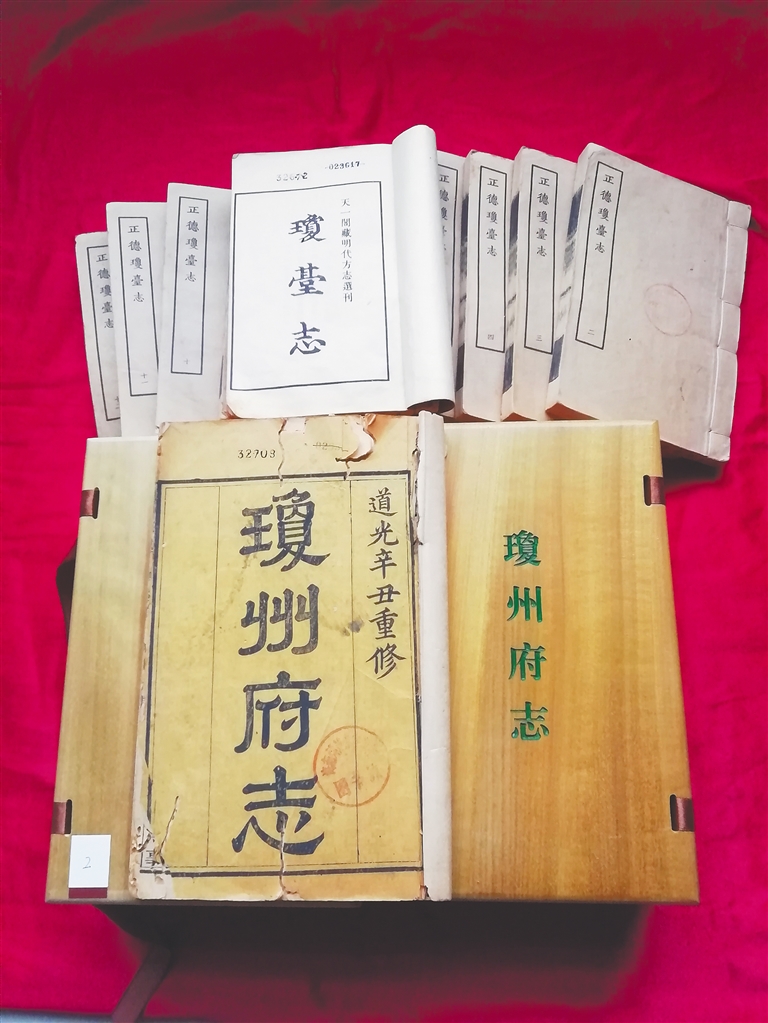 正德瓊臺志
正德瓊臺志
十一
正德瓊臺志
十
32672
-023617-
天一閣藏明代方志選刊
瓊臺志
正德瓊臺志
四
正德瓊臺志
三
正德瓊臺志
二
32703
道光辛丑重修
瓊州府志
瓊州府志
2